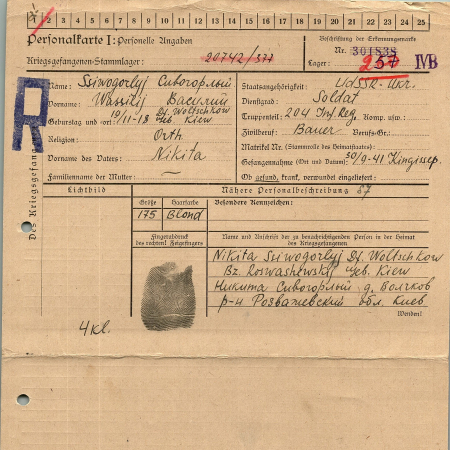 1 2 3 4 5 6 7 8 9 10 11 12 13 14 15 16 17 18 19 20 21 22 23 24 25
Personalkarte I: Personelle Angaben
Kriegsgefangenen-Stammlager: 20742/577
Beschriftung der Erkennungsmarke
Nr. 301838
Lager: IVB
Des Kriegsgefangenen
R
Name: Ssiwogorlyj Сивогорлый
Vorname: Wassilij Василий
Geburtstag und -ort: 19/11-18 Df. Woltschkow Geb. Kiew
Religion: Orth
Vorname des Vaters: Nikita
Familienname der Mutter: —
Staatsangehörigkeit: UdSSR-Ukr.
Dienstgrad: Soldat
Truppenteil: 204 Inf. Reg. Komp. usw.:
Zivilberuf: Bauer Berufs-Gr.:
Matrikel Nr. (Stammrolle des Heimatstaates):
Gefangennahme (Ort und Datum): 30/9-41 Kingissep.
Ob gesund, krank, verwundet eingeliefert:
Lichtbild
Nähere Personalbeschreibung 67
Größe Haarfarbe Besondere Kennzeichen:
175 Blond
Fingerabdruck
des rechten! Zeigefingers
Name und Anschrift der zu benachrichtigenden Person in der Heimat
des Kriegsgefangenen
Nikita Ssiwogorlyj Df. Woltschkow
Bz. Roswashewskj Geb. Kiew
Никита Сивогорлый д. Волчков
р-н Розважевский обл. Киев
Wenden!
4 kl.